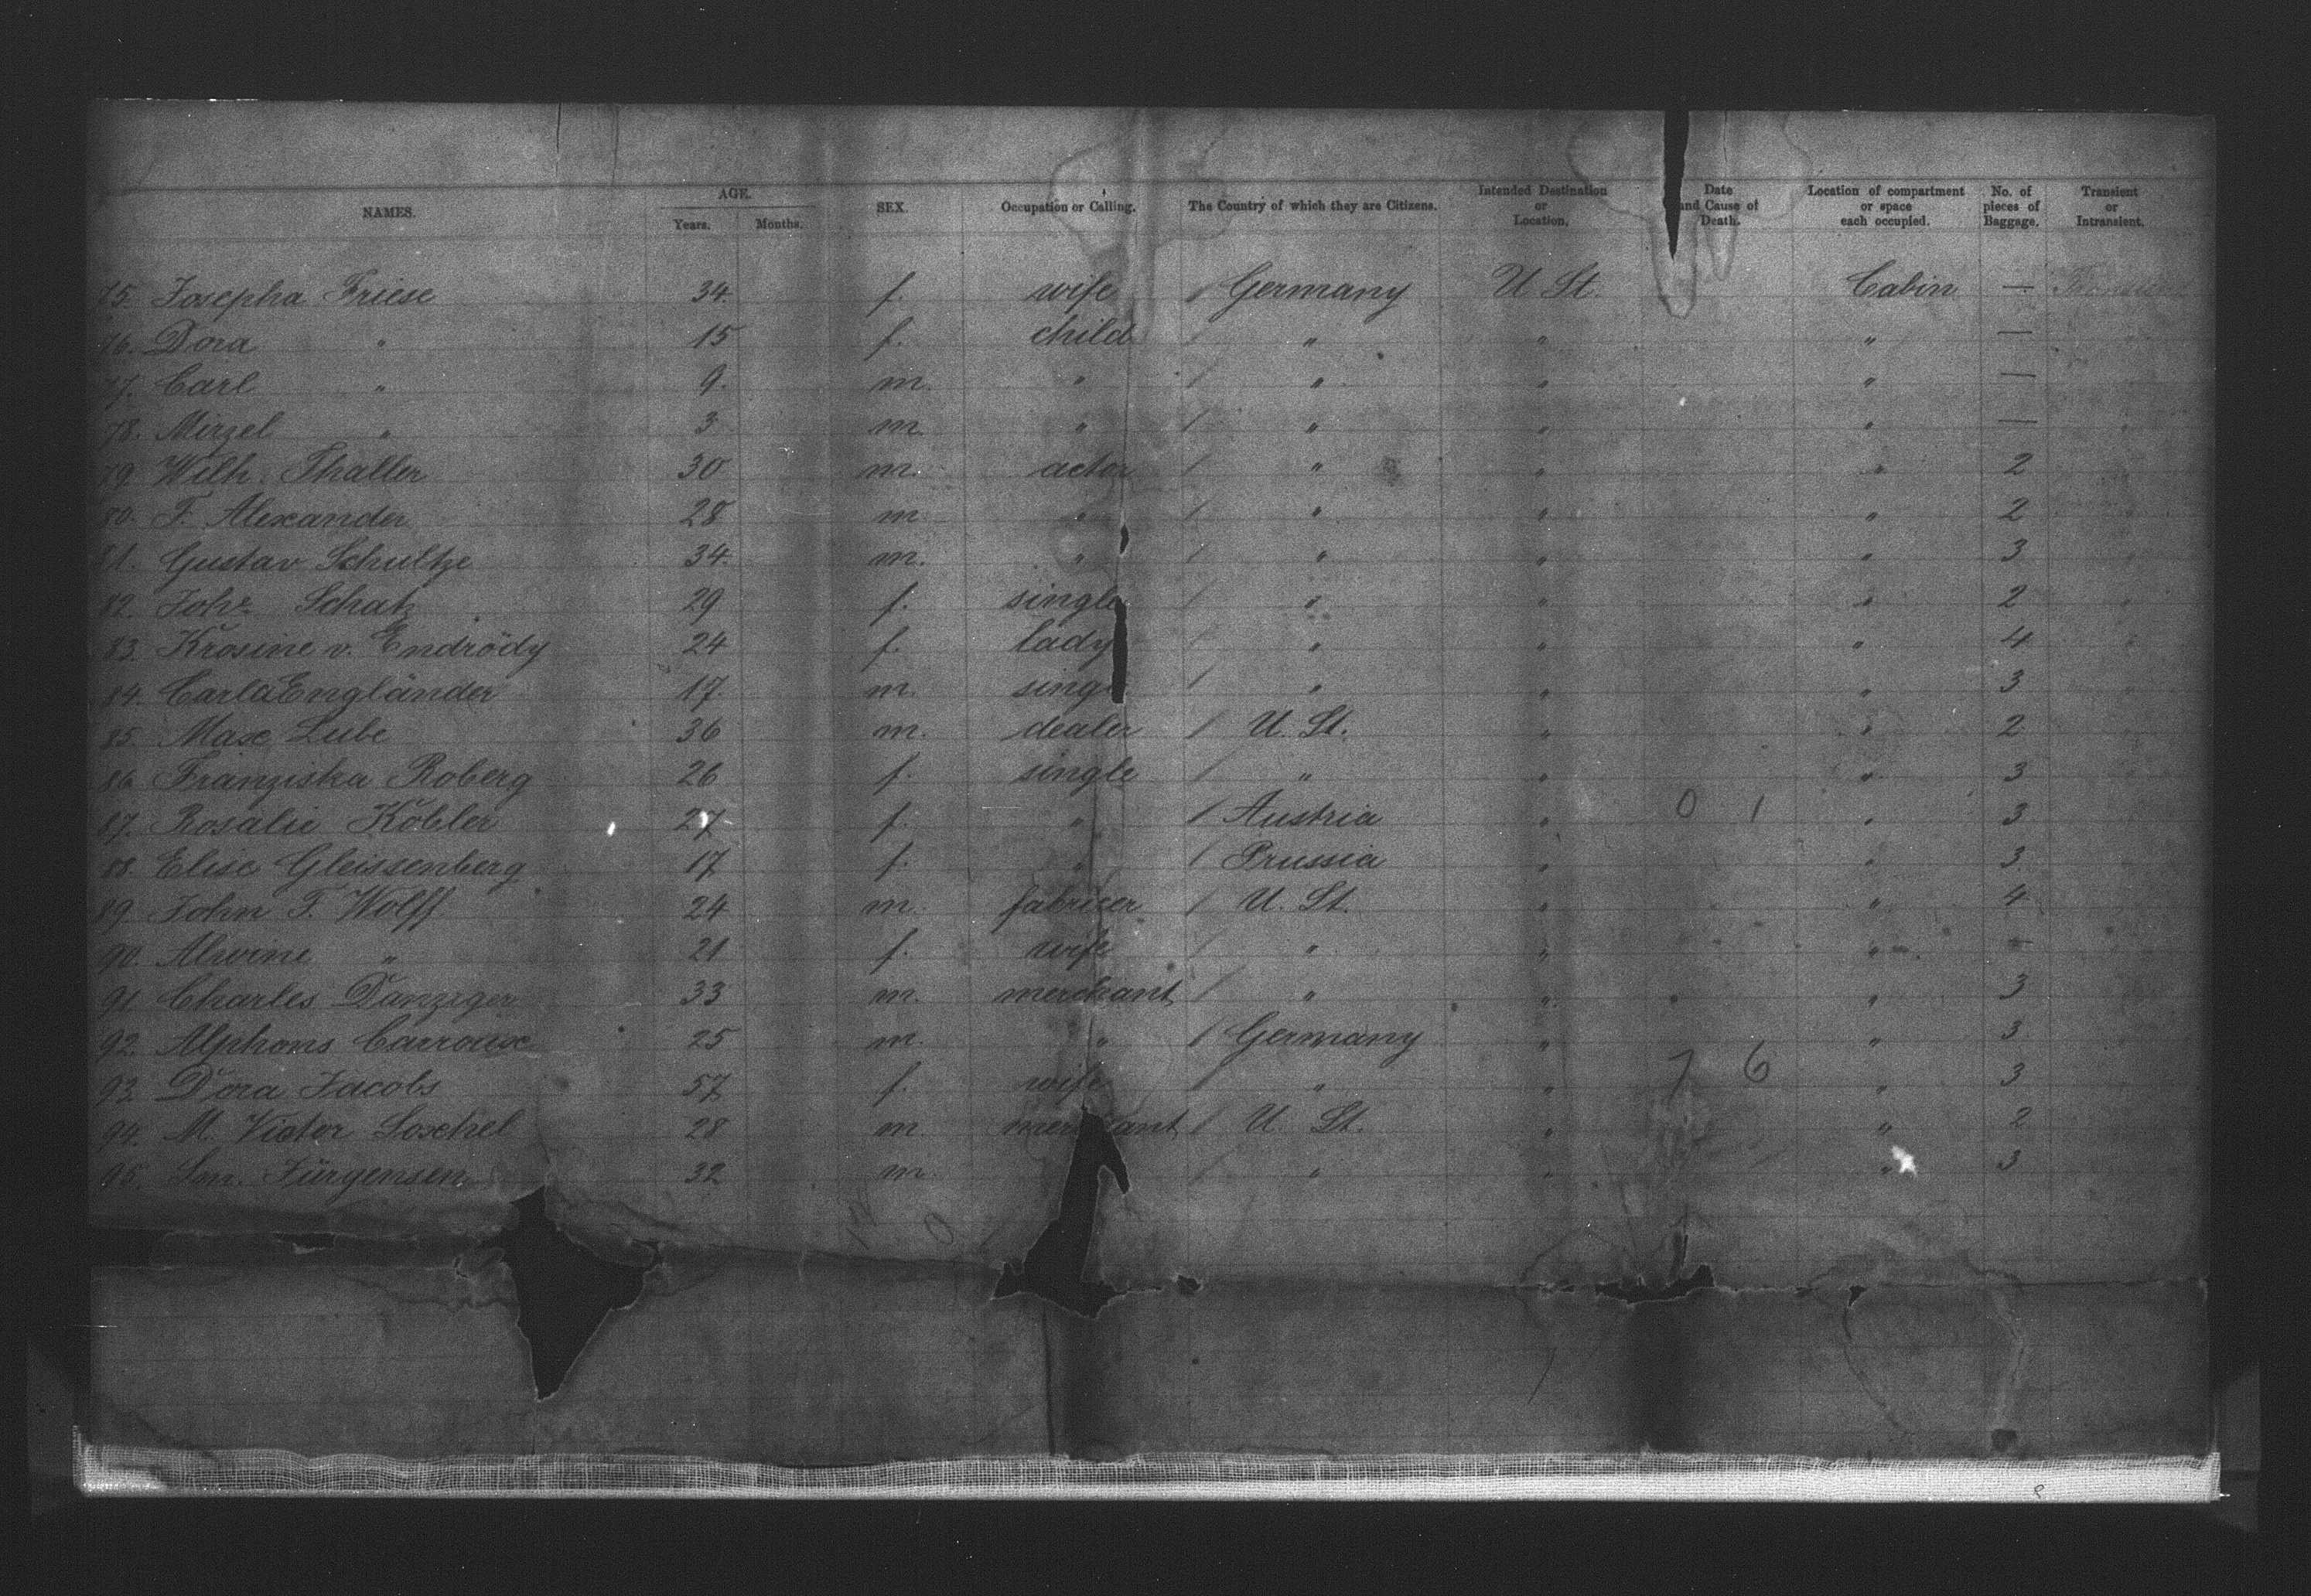 NAMES. AGE. Years. Months. SEX. Occupation or Calling. The Country of which they are Citizens. Intended Destination or Location. Date and Cause of Death. Location of compartment or space each occupied. No. of pieces of Baggage. Transient or Intransient.
75. Josepha Friese 34 f. wife / Germany U St. Cabin — Transient
76. Dora " 15 f. child / " " " —
77. Carl " 9. m. " / " " " —
78. Mirzel " 3 m. " / " " " —
79. Wilh. Thaller 30 m. actor / " " " 2
80. F. Alexander 28 m " / " " " 2
81. Gustav Schultze 34. m. " / " " " 3
82. Schatz 29 f. single / " " " 2
83. Krosine v. Endrödy 24 f. lady / " " " 4
84. Carla Engländer 17. m. / " " " 3
85. Max Lube 36 m. dealer / U. St. " " 2
86. Franziska Roberg 26 f. single / " " " 3
87. Rosalie Kobler 27 f. " / Austria " 0 1 " 3
88. Elise Gleissenberg 17 f. " / Prussia " " 3.
89. John F. Wolff 24 m. fabricer / U. St. " " 4
90. Alwine " 21 f. wife / " " " —
91. Charles Danziger 33 m. merchant / " " " 3
92. Alphons Carroux 25 m. " / Germany " " 3
93. Dora Jacobs 57 f. wife / " " 7 6 " 3
94. M. Victor Loschel 28 m. merchant / U. St. " " 2
95. Sm. Jürgensen 32 m. / " " " 3